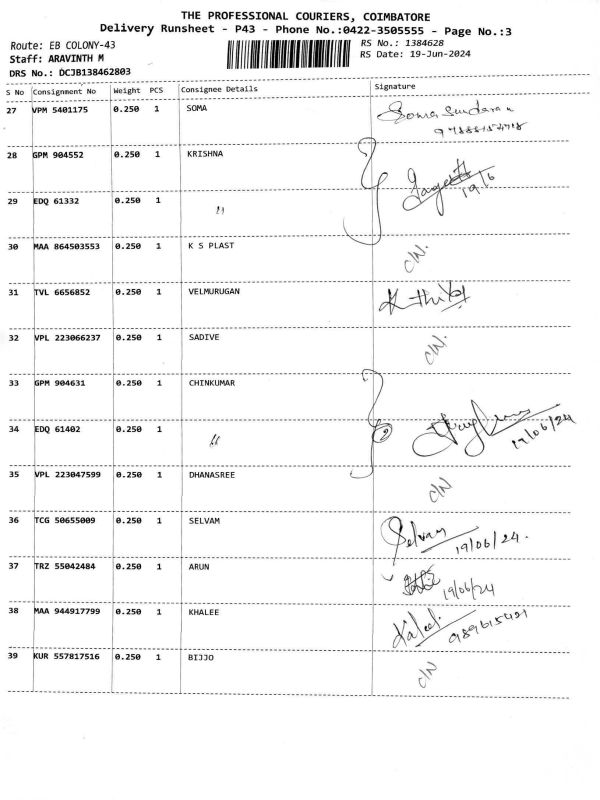 THE PROFESSIONAL COURIERS, COIMBATORE
Delivery Runsheet - P43 - Phone No.:0422-3505555 - Page No.:3
Route: EB COLONY-43 RS No.: 1384628
Staff: ARAVINTH M RS Date: 19-Jun-2024
DRS No.: DCJB138462803
S No Consignment No Weight PCS Consignee Details Signature
27 VPM 5401175 0.250 1 SOMA Soma Sundaram
28 GPM 904552 0.250 1 KRISHNA
29 EDQ 61332 0.250 1 " 19/6
30 MAA 864503553 0.250 1 K S PLAST C/N.
31 TVL 6656852 0.250 1 VELMURUGAN
32 VPL 223066237 0.250 1 SADIVE C/N.
33 GPM 904631 0.250 1 CHINKUMAR
34 EDQ 61402 0.250 1 " 2 19/06/24
35 VPL 223047599 0.250 1 DHANASREE C/N
36 TCG 50655009 0.250 1 SELVAM Selvam 19/06/24.
37 TRZ 55042484 0.250 1 ARUN 19/06/24
38 MAA 944917799 0.250 1 KHALEE Kaleel
39 KUR 557817516 0.250 1 BIJJO C/N